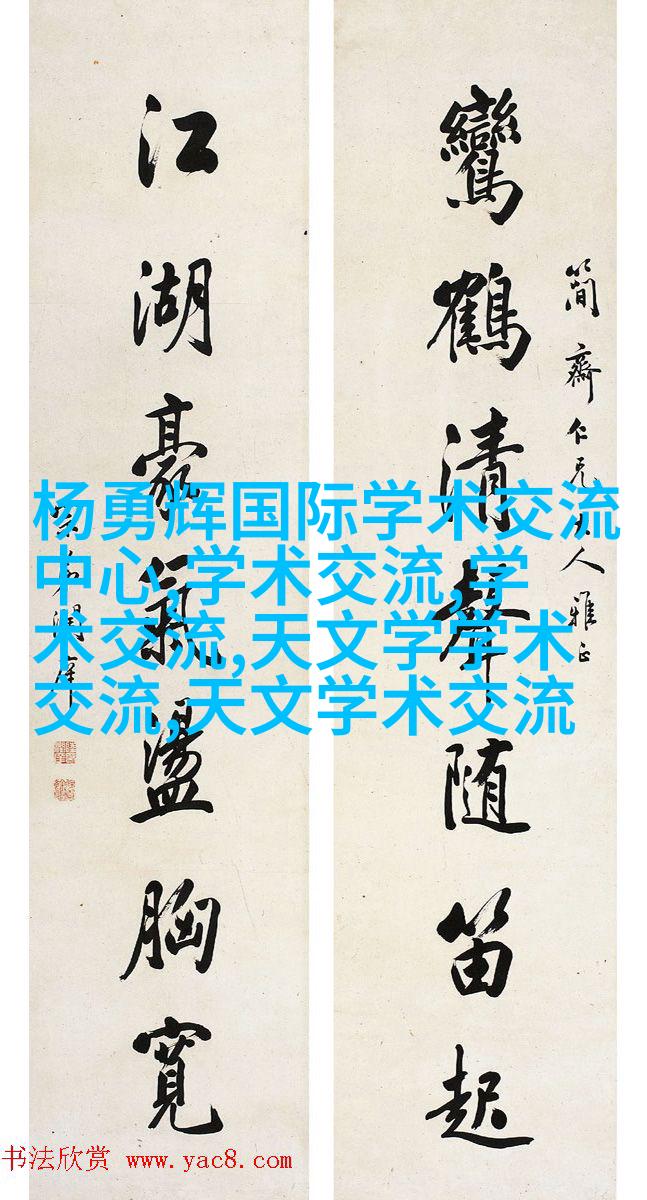 鸞鶴清聲随笛起
簡齋仁兄大人雅正
江湖豪氣盪胸寬
潤庠
杨勇辉国际学术交流
中心,学术交流,学
术交流,天文学学术
交流,天文学术交流
书法欣赏 www.yac8.com